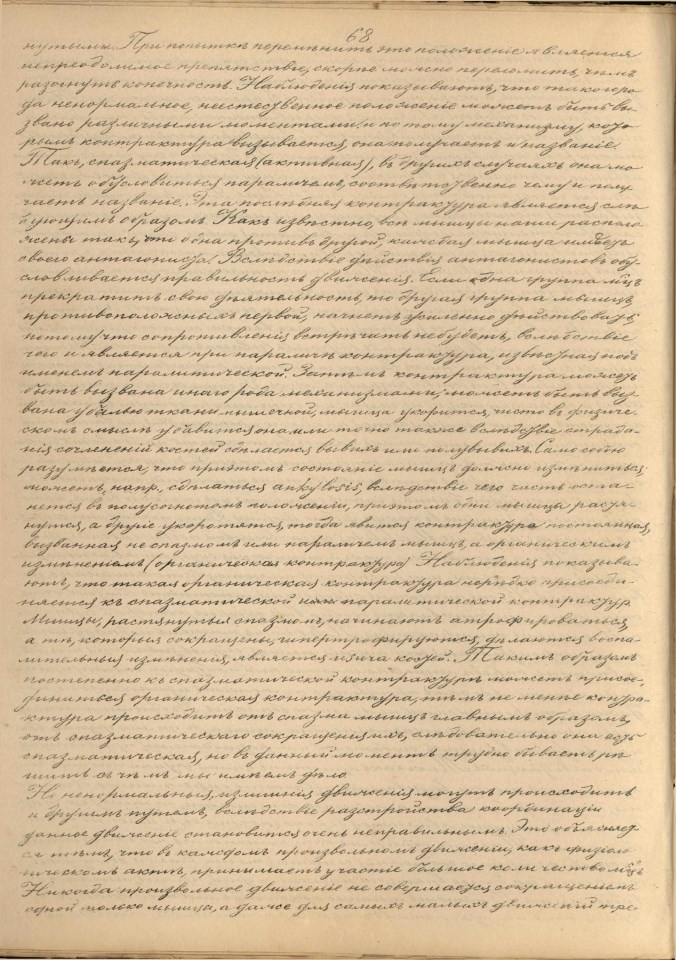 68
нутымъ. При попыткѣ перемѣнить это положеніе является
непреодолимое препятствіе, скорѣе можно переломить, чѣмъ
разогнуть конечность. Наблюденія показываютъ, что такого ро-
да ненормальное, неестественное положеніе можетъ быть вы-
звано различными моментами и по тому механизму, кото-
рымъ контрактура вызывается, она получаетъ и названіе.
Такъ, спазматическая (активная), въ другихъ случаяхъ она мо-
жетъ обусловиться параличемъ, соотвѣтственно чему и полу-
чаетъ названіе. Эта послѣдняя контрактура является слѣ-
дующимъ образомъ. Какъ извѣстно, всѣ мышцы наши располо-
жены такъ, что одна противъ другой, каждая мышца имѣетъ
своего антагониста. Вслѣдствіе дѣйствія антагонистовъ обу-
словливается правильность движенія. Если одна группа м̃цъ
прекратитъ свою дѣятельность, то другая группа мышцъ
противоположныхъ первой, начнетъ усиленно дѣйствовать,
потому что сопротивленія встрѣчать не будетъ, вслѣдствіе
чего и является при параличѣ контрактура, извѣстная подъ
именемъ паралитической. Затѣмъ контрактура можетъ
быть вызвана инаго рода механизмами; можетъ быть выз-
вана убылью ткани мышечной, мышца укоротится, чисто въ физиче-
скомъ смыслѣ убавится она или точно также вслѣдствіе страда-
нія сочлененій костей сдѣлается вывихъ или полувывихъ. Само собою
разумѣется, что при этомъ состояніе мышцъ должно измѣниться;
можетъ, напр., сдѣлаться ankylosis, вслѣдствіе чего часть оста-
нется въ полусогнутомъ положеніи, при этомъ одни мышцы растя-
нутся, а другіе укоротятся, тогда явится контрактура постоянная,
вызванная не спазмомъ или параличемъ мышцъ, а органическимъ
измѣненіемъ (органическая контрактура). Наблюденія показыва-
ютъ, что такая органическая контрактура нерѣдко присоеди-
няется къ спазматической или паралитической контрактурѣ
Мышцы, растянутыя спазмомъ, начинаютъ атрофироваться
а тѣ, которыя сокращены, гипертрофируются, дѣлаются воспа-
лительныя измѣненія, является кожей. Такимъ образомъ
постепенно къ спазматической контрактурѣ можетъ присое-
диниться органическая контрактура, тѣмъ не менѣе контра-
ктура происходитъ отъ спазма мышцъ главнымъ образомъ,
отъ спазматическаго сокращенія ихъ, слѣдовательно она есть
спазматическая, но въ данный моментъ трудно бываетъ рѣ-
шить съ чѣмъ мы имѣемъ дѣло
Но ненормальныя, излишнія движенія могутъ происходить
и другимъ путемъ, вслѣдствіе разстройства координаціи
данное движеніе становится очень неправильнымъ. Это объясняет-
ся тѣмъ, что въ каждомъ произвольномъ движеніи, какъ физіоло-
гическомъ актѣ, принимаетъ участіе большое количество м̃цъ
Никогда произвольное движеніе не совершается сокращеніемъ
одной только мышцы, а даже для самыхъ малыхъ движеній тре-